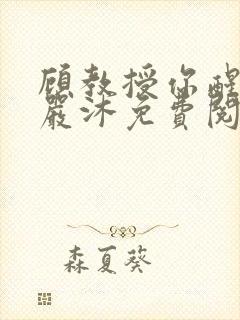 顾教授你醒
严沐免费阅
森夏葵